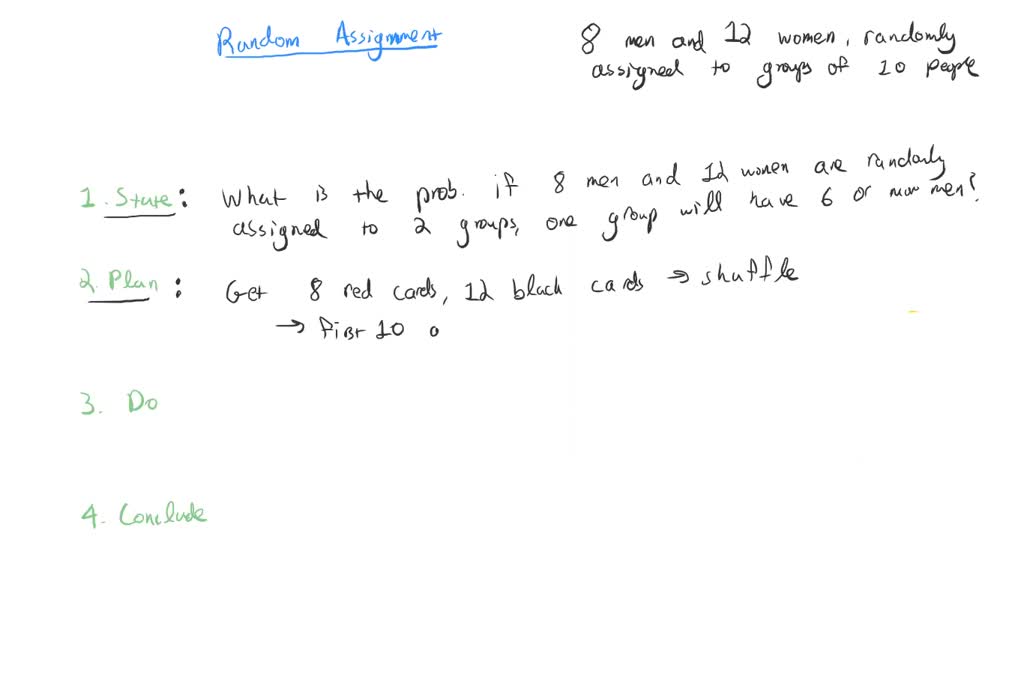 Random Assignment
8 men and 12 women, randomly
assigned to groups of 10 people
1. State: What is the prob. if 8 men and 12 women are randomly
assigned to 2 groups, one group will have 6 or more men?
2. Plan: Get 8 red cards, 12 black cards → shuffle
→ first 10 o
3. Do
4. Conclude